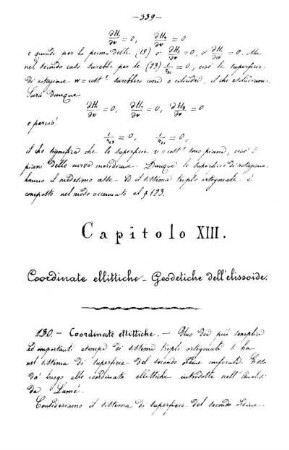 -339-
∂H₁/∂v = 0, ∂H₂/∂v = 0
e quindi per la prima delle (18) o ∂H₁/∂v = 0, o ∂H/∂v = 0. Ma
nel secondo caso sarebbe per le (23) = 0, cioè le superficie
di rotazione w = cost.ᵗᵉ sarebbero coni o cilindri, il che escludiamo.
Sarà dunque
= 0, = 0, = 0
e perciò
= 0, = 0,
il che significa che le superficie v = cost.ᵗᵉ sono piani, cioè i
piani delle curve meridiane. Dunque le superficie di rotazione
hanno il medesimo asse ed il sistema triplo ortogonale è
composto nel modo accennato al § 123.
Capitolo XIII.
Coordinate ellittiche - Geodetiche dell'elissoide.
130. - Coordinate ellittiche. - Uno dei più semplici
ed importanti esempi di sistemi tripli ortogonali si ha
nel sistema di superficie del secondo ordine omofocali. Esso
dà luogo alle coordinate ellittiche introdotte nell'Analisi
da Lamé.
Consideriamo il sistema di superficie del secondo ordine